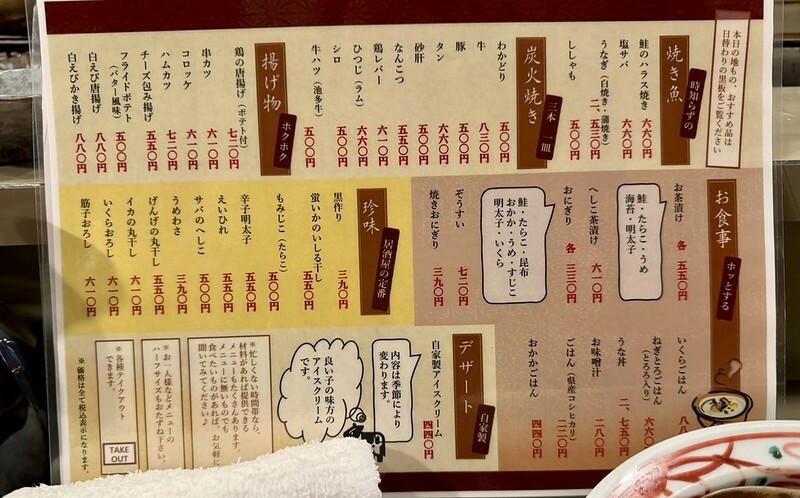 本日の地もの、おすすめ品は
日替わりの黒板をご覧ください
焼き魚 時知らずの
鮭のハラス焼き 六六〇円
塩サバ 六六〇円
うなぎ（白焼き・蒲焼き） 二、五三〇円
ししゃも 五五〇円
炭火焼き 三本 一皿
わかどり 五〇〇円
牛 八三〇円
豚 五五〇円
タン 六六〇円
砂肝 五〇〇円
なんこつ 五五〇円
鶏レバー 六一〇円
ひつじ（ラム） 六六〇円
シロ 五〇〇円
牛ハツ（池多牛） 五〇〇円
揚げ物 ホクホク
鶏の唐揚げ（ポテト付） 七二〇円
串カツ 六一〇円
コロッケ 六一〇円
ハムカツ 七二〇円
チーズ包み揚げ 五五〇円
フライドポテト
（バター風味） 五〇〇円
白えび唐揚げ 八八〇円
白えびかき揚げ 八八〇円
お食事 ホッとする
お茶漬け 各 五五〇円
鮭・たらこ・うめ
海苔・明太子
へしこ茶漬け 六一〇円
おにぎり 各 三三〇円
鮭・たらこ・昆布
おかか・うめ・すじこ
明太子・いくら
ぞうすい 七二〇円
焼きおにぎり 三九〇円
いくらごはん
ねぎとろごはん
（とろろ入り） 六六〇円
うな丼 二、七五〇円
お味噌汁 二八〇円
ごはん（県産コシヒカリ） 二二〇円
おかかごはん 四四〇円
珍味 居酒屋の定番
黒作り 三九〇円
蛍いかのいしる干し 五五〇円
もみじこ（たらこ） 五〇〇円
辛子明太子 五五〇円
えいひれ 五五〇円
サバのへしこ 五〇〇円
うめわさ 三九〇円
げんげの丸干し 五五〇円
イカの丸干し 六一〇円
いくらおろし 六一〇円
筋子おろし 六一〇円
デザート 自家製
自家製アイスクリーム 四四〇円
内容は季節により
変わります。
良い子の味方の
アイスクリーム
です。
※忙しくない時間帯なら、
材料があれば提供できる
メニューもたくさんあります。
メニューに無いものでも
食べたいものがあれば、お気軽に
聞いてみてください♪
※お一人様などメニューの
ハーフサイズもおたずね下さい。
※各種テイクアウト
できます。
TAKE
OUT
※価格は全て税込表示になります。